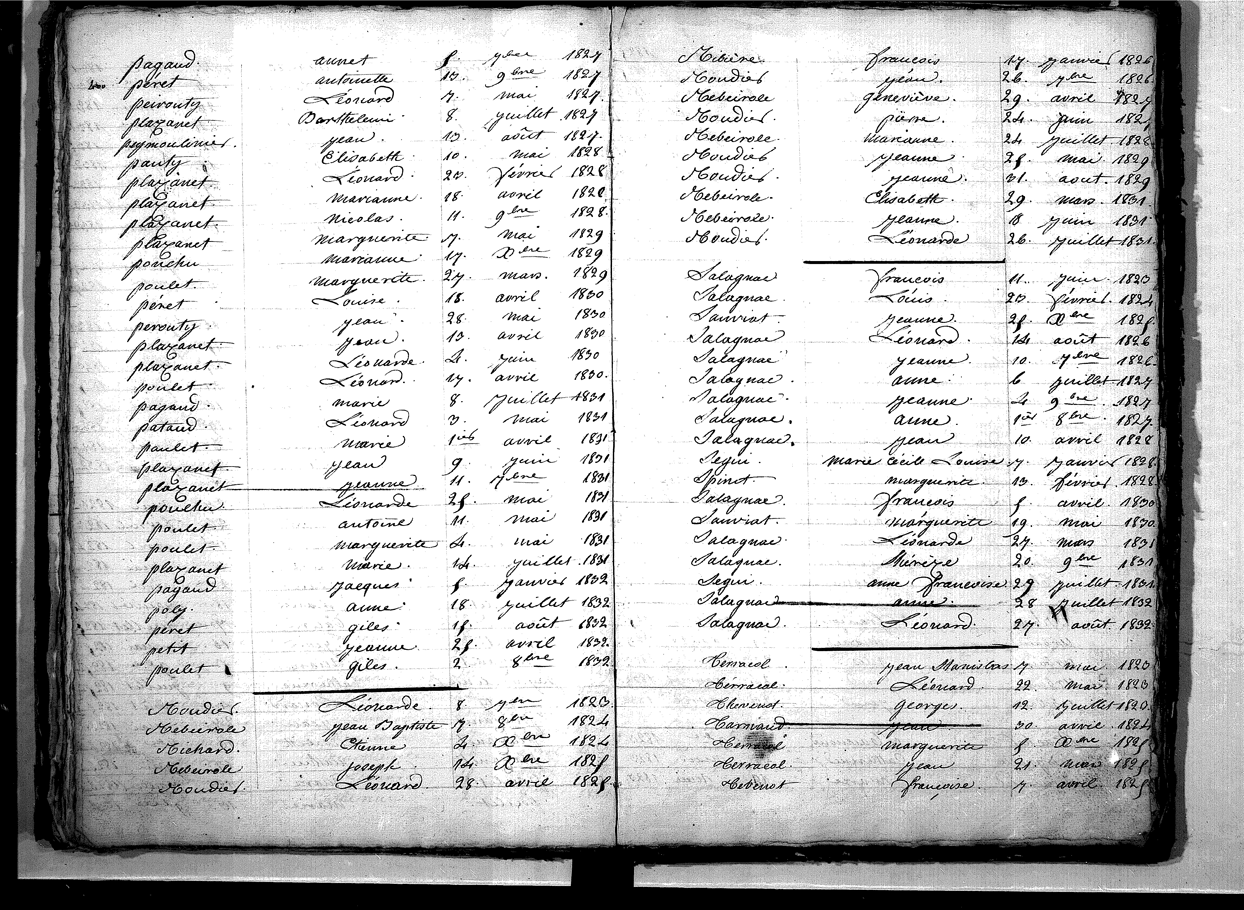 pagaud. annet 5. 7bre 1827
péret antoinette 13. 9bre 1827
peirouty Léonard 7. mai 1827.
plazanet Barthelemi 8. juillet 1827
peymoulinier. jean. 13 août 1827.
pauty Elisabeth 10. mai 1828
plazanet Léonard. 20 février 1828
plazanet. marianne. 18. avril 1828
plazanet. nicolas. 11. 9bre 1828.
plazanet marguerite 7. mai 1829
pouchu marianne 17. Xbre 1829
poulet marguerite 27. mars. 1829
péret Louise. 18. avril 1830
perouty jean 28. mai 1830
plazanet jean. 13. avril 1830
plazanet Léonarde 4. juin 1830
poulet Léonard. 17. avril 1830.
pagaud. marie 8. juillet 1831
pataud. Léonard 3. mai 1831
paulet marie 1er avril 1831
plazanet jean 9. juin 1831
plazanet jeanne 11. 7bre 1831
pouchu Léonarde 25. mai 1831
poulet antoine 11. mai 1831
poulet. marguerite 4. mai 1831
plazanet marie. 14. juillet 1831
pagaud jacques 5. janvier 1832
poly. anne 18. juillet 1832
péret giles. 15. août 1832
petit jeanne 25. avril 1832
poulet giles. 2. 8bre 1832
Roudier. Léonarde. 8 7bre 1823.
Rebeirole jean Baptiste 7. 8bre 1824
Richard. Etienne 4 Xbre 1824
Rebeirole joseph. 14 Xbre 1825
Roudier. Léonard. 28 avril 1825.
Ribière françois 17. janvier 1826
Roudier jean. 26. 7bre 1826
Rebeirole geneviève. 29. avril 1827
Roudier pierre. 24. juin 1827
Rebeirole. marianne. 24 juillet 1828
Roudier jeanne 25. mai 1829
Roudier. jeanne. 21. aout. 1829
Rebeirole Elisabeth. 29. mars. 1831.
Rebeirole. jeanne. 18 juin 1831.
Roudier. Léonarde 26. juillet 1831.
Salagnac françois 11. juin 1823
Salagnac. Louis 23. février. 1824
Sauviat. jeanne. 25. Xbre 1825
Salagnac. Léonard. 14 août 1826
Salagnac jeanne 10. 7bre 1826.
Salagnac. anne. 6. juillet 1827
Salagnac. jeanne. 4 9bre 1827
Salagnac. anne. 1er 8bre 1827
Salagnac. jean 10. avril 1828
Segui. marie Cécile Louise 7. janvier 1828.
Spinat marguerite. 13. février. 1828
Salagnac françois 5 avril 1830
Sauviat. marguerite 19. mai 1830.
Salagnac. Léonarde 27. mars 1831
Salagnac. thérèze 20. 9bre 1831
Segui. anne françoise 29 juillet 1831
Salagnac anne. 28 juillet 1832
Salagnac. Léonard. 27. août. 1832.
Terracol. jean 7. mai 1823
Terracol. Léonard. 22. mai 1823
Thevenot georges 12. juillet 1823.
Tarnaud jean 30. avril 1824
Terracol marguerite 5. Xbre 1825
Terracol. jean 21. mars 1825
Tevenot françoise. 7. avril. 1825